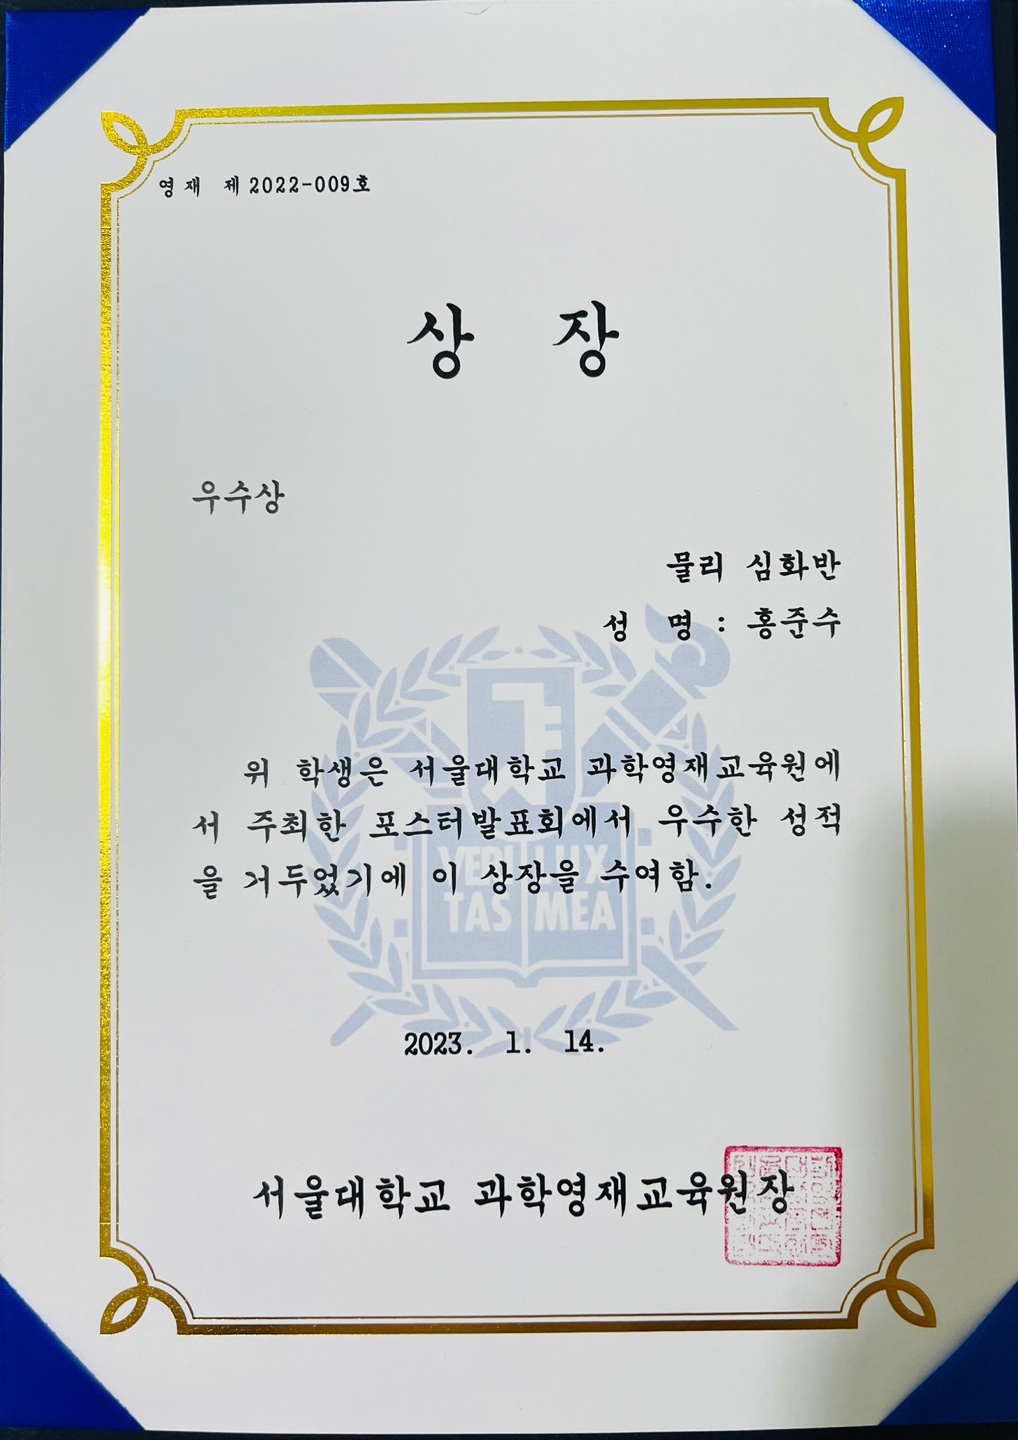 영재 제2022-009호
상 장
우수상
물리 심화반
성 명 : 홍준수
위 학생은 서울대학교 과학영재교육원에
서 주최한 포스터발표회에서 우수한 성적
을 거두었기에 이 상장을 수여함.
VERI LUX
TAS MEA
2023. 1. 14.
서울대학교 과학영재교육원장